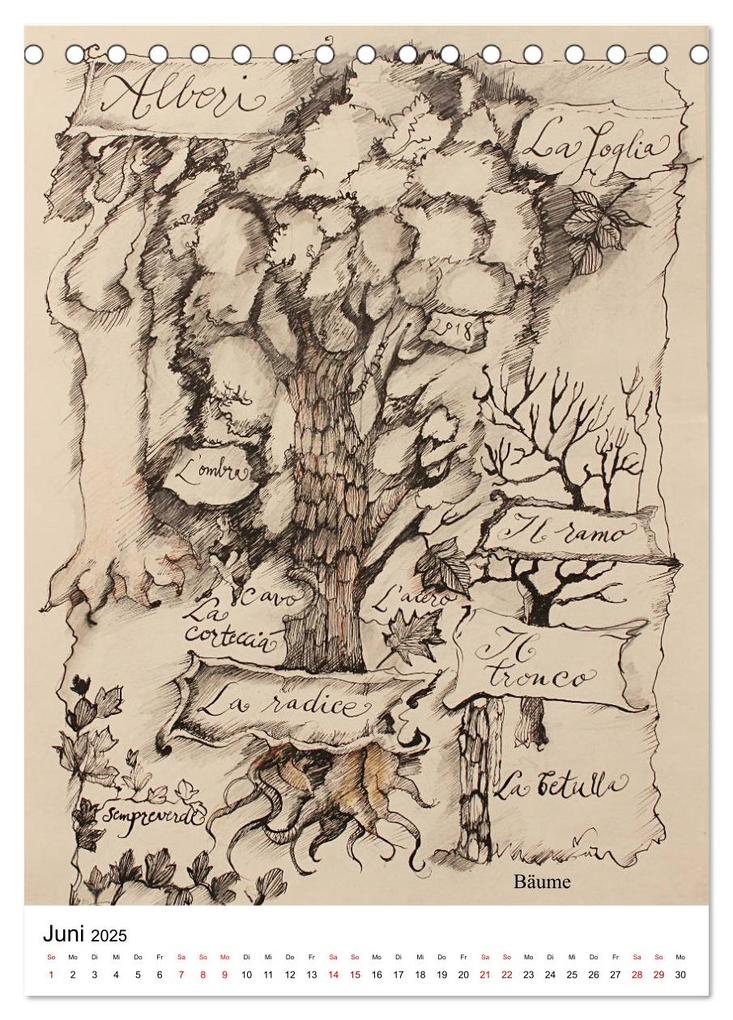 Alberi
La foglia
2018
L'ombra
Il ramo
Cavo
La
corteccia
L'acero
Il
tronco
La radice
La betulla
Sempreverde
Bäume
Juni 2025
So Mo Di Mi Do Fr Sa So Mo Di Mi Do Fr Sa So Mo Di Mi Do Fr Sa So Mo Di Mi Do Fr Sa So Mo
1 2 3 4 5 6 7 8 9 10 11 12 13 14 15 16 17 18 19 20 21 22 23 24 25 26 27 28 29 30